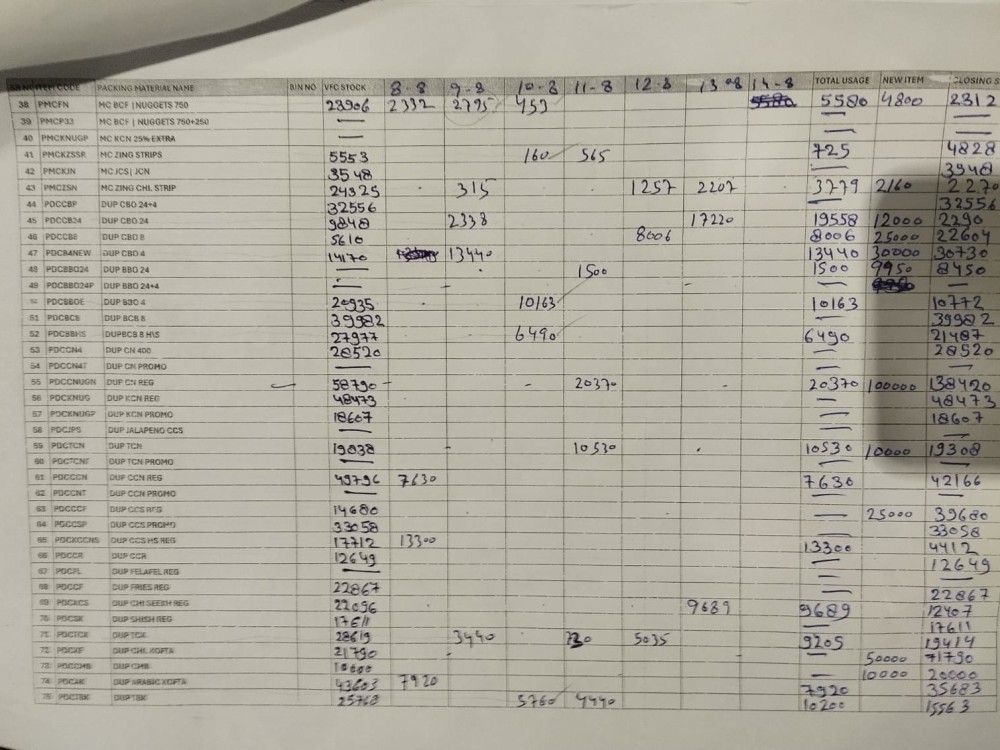 ITEM CODE PACKING MATERIAL NAME BIN NO VFC STOCK 8-8 9-8 10-8 11-8 12-8 13-8 14-8 TOTAL USAGE NEW ITEM CLOSING S
38 PMCFN MC BCF | NUGGETS 750 23906 2332 2795 453 5580 4800 2312
39 PMCP33 MC BCF | NUGGETS 750+250 — — —
40 PMCKNUGP MC KCN 25% EXTRA — — —
41 PMCKZSSR MC ZING STRIPS 5553 160 565 725 4828
42 PMCKJN MC JCS| JCN 3548 — 3548
43 PMCZSN MC ZING CHL STRIP 24325 315 1257 2207 3779 2160 2270
44 PDCCBP DUP CBO 24+4 32556 — 32556
45 PDCCB24 DUP CBO 24 9848 2338 17220 19558 12000 2290
46 PDCCB8 DUP CBO 8 5610 8006 8006 25000 22604
47 PDCB4NEW DUP CBO 4 14170 13440 13440 30000 30730
48 PDCBBO24 DUP BBO 24 — 1500 1500 9950 8450
49 PDCBBO24P DUP BBO 24+4 — — —
PDCBBOE DUP BBO 4 20935 10163 10163 10772
51 PDCBCB DUP BCB 8 39982 — 39982
52 PDCBBHS DUPBCB 8 H\S 27977 6490 6490 21487
53 PDCCN4 DUP CN 400 28520 — 28520
54 PDCCN4T DUP CN PROMO — — —
55 PDCCNUGN DUP CN REG 58790 20370 20370 100000 138420
56 PDCKNUG DUP KCN REG 48473 — 48473
57 PDCKNUGP DUP KCN PROMO 18607 — 18607
58 PDCJPS DUP JALAPENO CCS — — —
59 PDCTCN DUP TCN 19838 10530 10530 10000 19308
60 PDCTCNF DUP TCN PROMO — — —
61 PDCCCN DUP CCN REG 49796 7630 7630 42166
62 PDCCNT DUP CCN PROMO — — —
63 PDCCCF DUP CCS REG 14680 — 25000 39680
64 PDCCSP DUP CCS PROMO 33058 — 33058
65 DUP CCS HS REG 17712 13300 13300 4412
66 PDCCR DUP CCR 12649 — 12649
67 PDCFL DUP FELAFEL REG — — —
68 PDCCF DUP FRIES REG 22867 — 22867
69 PDCKCS DUP CHI SEEKH REG 22096 9689 9689 12407
70 PDCSK DUP SHISH REG 17611 — 17611
71 PDCTCK DUP TCK 28619 3440 730 5035 9205 19414
72 DUP CHL KOFTA 21790 — 50000 71790
73 DUP CMB 10000 — 10000 20000
74 DUP ARABIC KOFTA 43603 7920 7920 35683
75 PDCTBK DUP TBK 25763 5760 4440 10200 15563